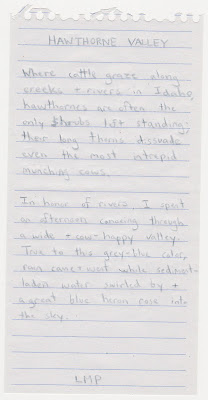 HAWTHORNE VALLEY
Where cattle graze along
creeks + rivers in Idaho,
hawthornes are often the
only shrubs left standing,
their long thorns dissuade
even the most intrepid
munching cows.
In honor of rivers, I spent
an afternoon canoeing through
a wide + cow-happy valley.
True to this grey-blue color,
rain came + went while sediment-
laden water swirled by +
a great blue heron rose into
the sky.
LMP